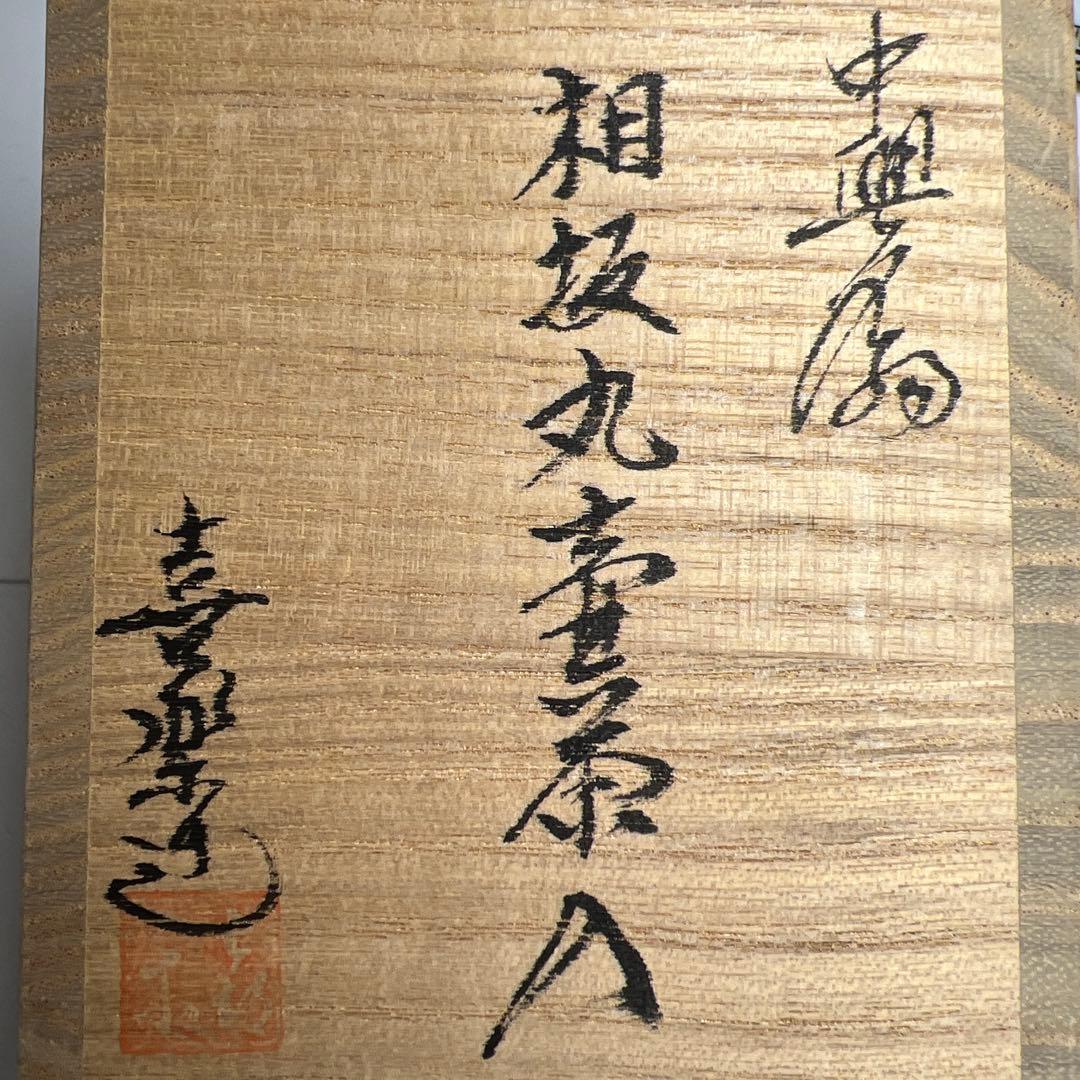 中興名物
相坂丸壷茶入
喜楽造